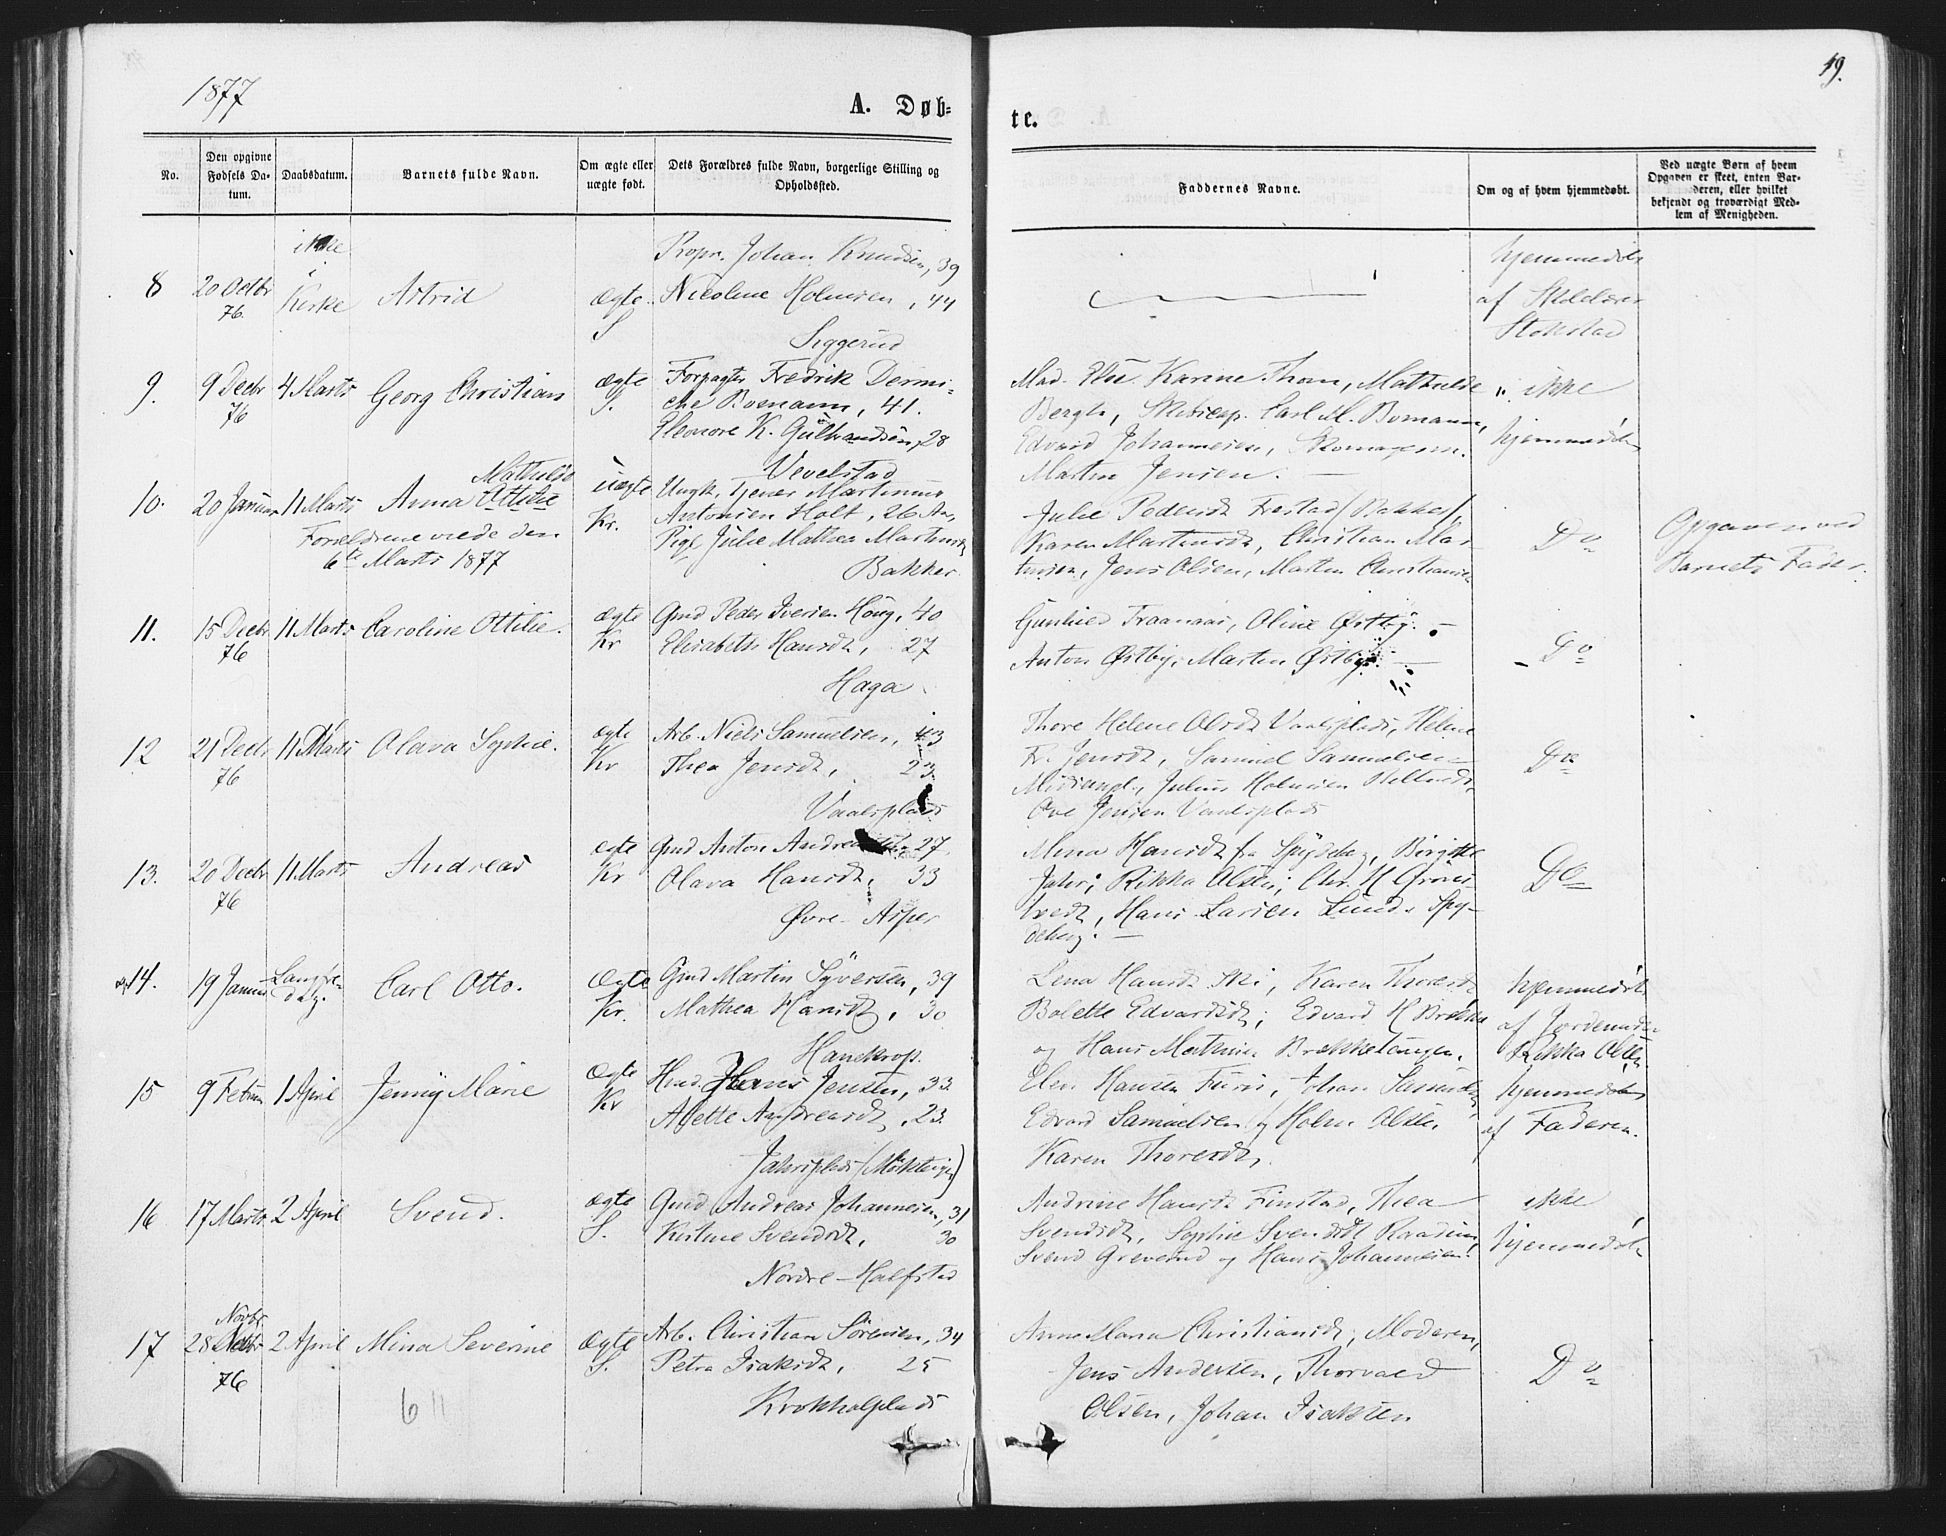 1877
19.
A. Døb-
te.
No.
Den opgivne Fødsels Da-tum.
Daabsdatum.
Barnets fulde Navn.
Om ægte eller uægte født.
Dets Forældres fulde Navn, borgerlige Stilling og Opholdssted.
Faddernes Navne.
Om og af hvem hjemmedøbt.
Ved uægte Børn af hvem Opgaven er skeet, enten Bar-
deren, eller hvilket bekjendt og troværdigt Med-lem af Menigheden.
8 20 Octbr 76 ikke i Kirke Astrid ægte S
Propr. Johan Knudsen, 39
Nicoline Holmsen, 44
Siggerud
hjemmedøbt
af
Stokstad
9. 9 Decbr 76 4 Marts Georg Christian ægte S.
Forpagter Fredrik
Bomann, 41.
Eleonore K. Gulbrandsen, 28
Vevelstad
Mad. Karine Thom, Mathilde
Bergh, Carl M. Bomann,
Edvard Johannesen,
Martin Jensen.
ikke
hjemmedøbt
10. 20 Januar 11 Marts Anna Mathilde Ottilie uægte Kr.
Forældrene viede den
6te Marts 1877
Ungk. Tjener Martinius
Antonsen Holt, 26 Aar,
Pige Julie Mathea Martinsdt
Bakker
Julie Pedersdt (Bakker),
Karen Martinsdt, Christian Mar-
tinsen, Jens Olsen, Martin Christianse-
Do
Opgaven ved
Barnets Fader.
11. 15 Decbr 76 11 Marts Caroline Ottilie. ægte Kr
Gmd Peder Iversen Houg, 40
Elisabeth Hansdt, 27
Haga
Gunhild Traanaas, Oline Østby.
Anton Østby, Martin Østby.
Do
12 21 Decbr 76 11 Marts Olava Sophie. ægte Kr
Arb. Niels Samuelsen, 43
Thea Jensdt, 23
Vaalsplads
Thore Helene Olsdt Vaalsplads, Helene
Fr. Jensdt, Samuel Samuelsen
Julius Holmsen
Ove Jensen Vaalsplads
Do
13. 20 Decbr 76 11 Marts Andreas ægte Kr
Gmd Anton 27
Olava Hansdt, 33
Øvre Asper
Mina Hansdt fra Spydebg, Birgitte
Jahr, Rikka Olsen, Chr. H
tvedt, Hans Larsen Lund, Spy-
deberg.
Do
14. 19 Januar Langfre-dag. Carl Otto. ægte Kr.
Gmd Martin Syversen, 39
Mathea Hansdt, 30
Hanekrop.
Lena Hansdt Ski, Karen Thoresdt
Bolette Edvardsdt, Edvard H
og Hans Mathisen Brekketangen.
hjemmedøbt
af Jordemoder
Rikka Olsen
15 9 Februar 1 April Jenny Marie ægte Kr
Hmd. Hans Jensen, 33
Alette Andreasdt, 23
Jahrsplads
Elen Hansen Furu, Johan
Edvard Samuelsen og Holm Olsen.
Karen Thoresdt.
hjemmedøbt
af Faderen.
16 17 Marts 2 April Svend. ægte S.
Gmd Andreas Johannesen, 31
Kirstine Svendsdt, 30
Nordre-Halfstad
Andrine Hansdt Finstad, Thea
Svendsdt, Sophie Svendsdt
Svend Grevestad og Hans Johannesen.
ikke
hjemmedøbt
17 28 Novbr 76 2 April Mina Severine ægte S.
Arb. Christian Sørensen, 34
Petra Isaksdt, 25
Krokholplads
Anne Maria Christiansdt, Moderen,
Jens Andersen, Thorvald
Olsen, Johan Isaksen
Do
6 11